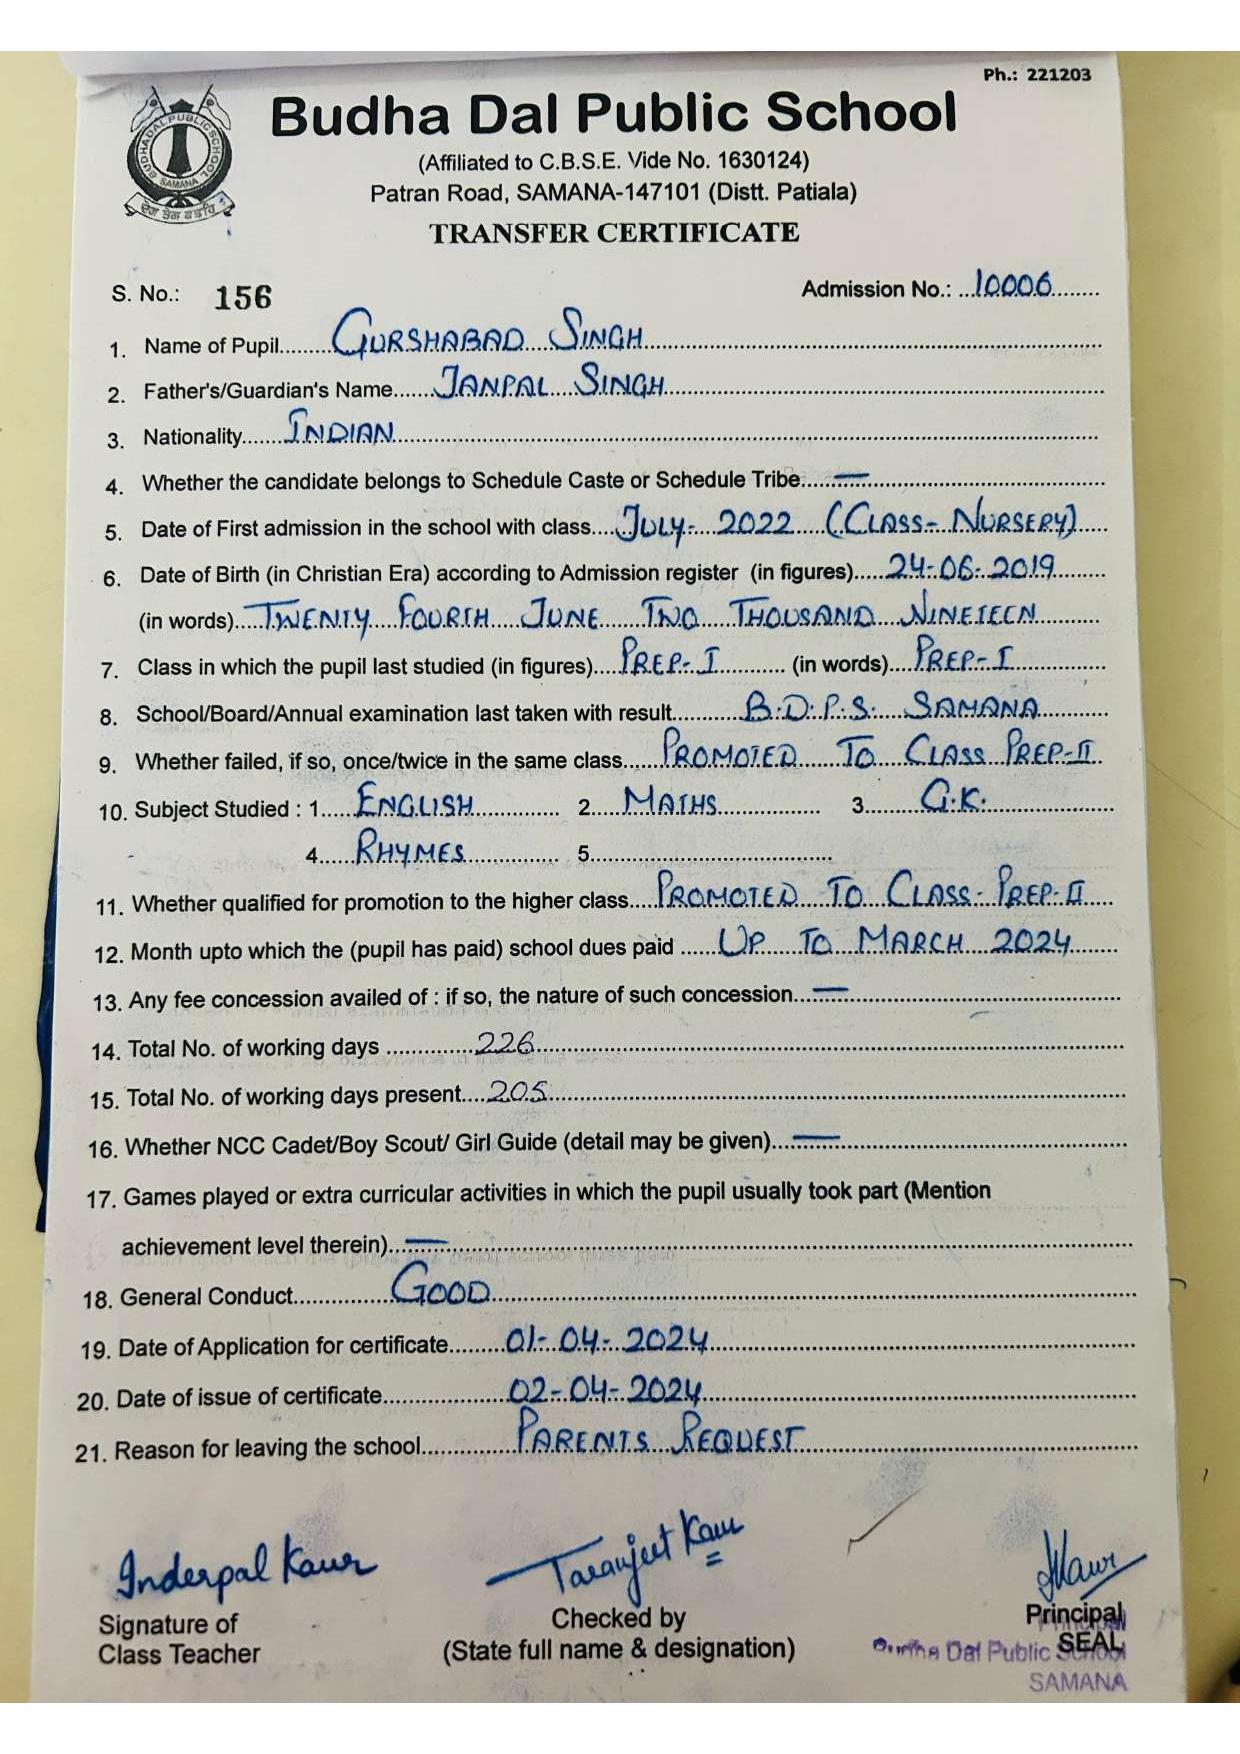 Ph.: 221203
BUDHA DAL PUBLIC SCHOOL
SAMANA
Budha Dal Public School
(Affiliated to C.B.S.E. Vide No. 1630124)
Patran Road, SAMANA-147101 (Distt. Patiala)
TRANSFER CERTIFICATE
S. No.: 156 Admission No.: 10006
1. Name of Pupil GURSHABAD SINGH
2. Father's/Guardian's Name JANPAL SINGH
3. Nationality INDIAN
4. Whether the candidate belongs to Schedule Caste or Schedule Tribe —
5. Date of First admission in the school with class JULY- 2022 (CLASS- NURSERY)
6. Date of Birth (in Christian Era) according to Admission register (in figures) 24-06-2019
(in words) TWENTY FOURTH JUNE TWO THOUSAND NINETEEN
7. Class in which the pupil last studied (in figures) PREP-I (in words) PREP-I
8. School/Board/Annual examination last taken with result B.D.P.S. SAMANA
9. Whether failed, if so, once/twice in the same class PROMOTED TO CLASS PREP-II
10. Subject Studied : 1 ENGLISH 2 MATHS 3 G.K.
4 RHYMES 5
11. Whether qualified for promotion to the higher class PROMOTED TO CLASS- PREP-II
12. Month upto which the (pupil has paid) school dues paid UP TO MARCH 2024
13. Any fee concession availed of : if so, the nature of such concession —
14. Total No. of working days 226
15. Total No. of working days present 205
16. Whether NCC Cadet/Boy Scout/ Girl Guide (detail may be given) —
17. Games played or extra curricular activities in which the pupil usually took part (Mention
achievement level therein) —
18. General Conduct GOOD
19. Date of Application for certificate 01-04-2024
20. Date of issue of certificate 02-04-2024
21. Reason for leaving the school PARENTS REQUEST
Inderpal Kaur Taranjeet Kaur
Signature of Checked by Principal
Class Teacher (State full name & designation) SEAL
Principal
Budha Dal Public School
SAMANA